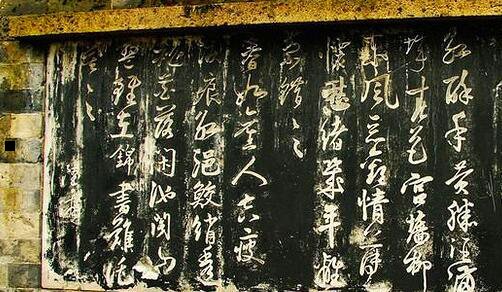 红酥手黄縢酒满
城春色宫墙柳
东风恶欢情薄
一怀愁绪几年离
索错错错
春如旧人空瘦
泪痕红浥鲛绡透
桃花落闲池阁山
盟虽在锦书难托
莫莫莫